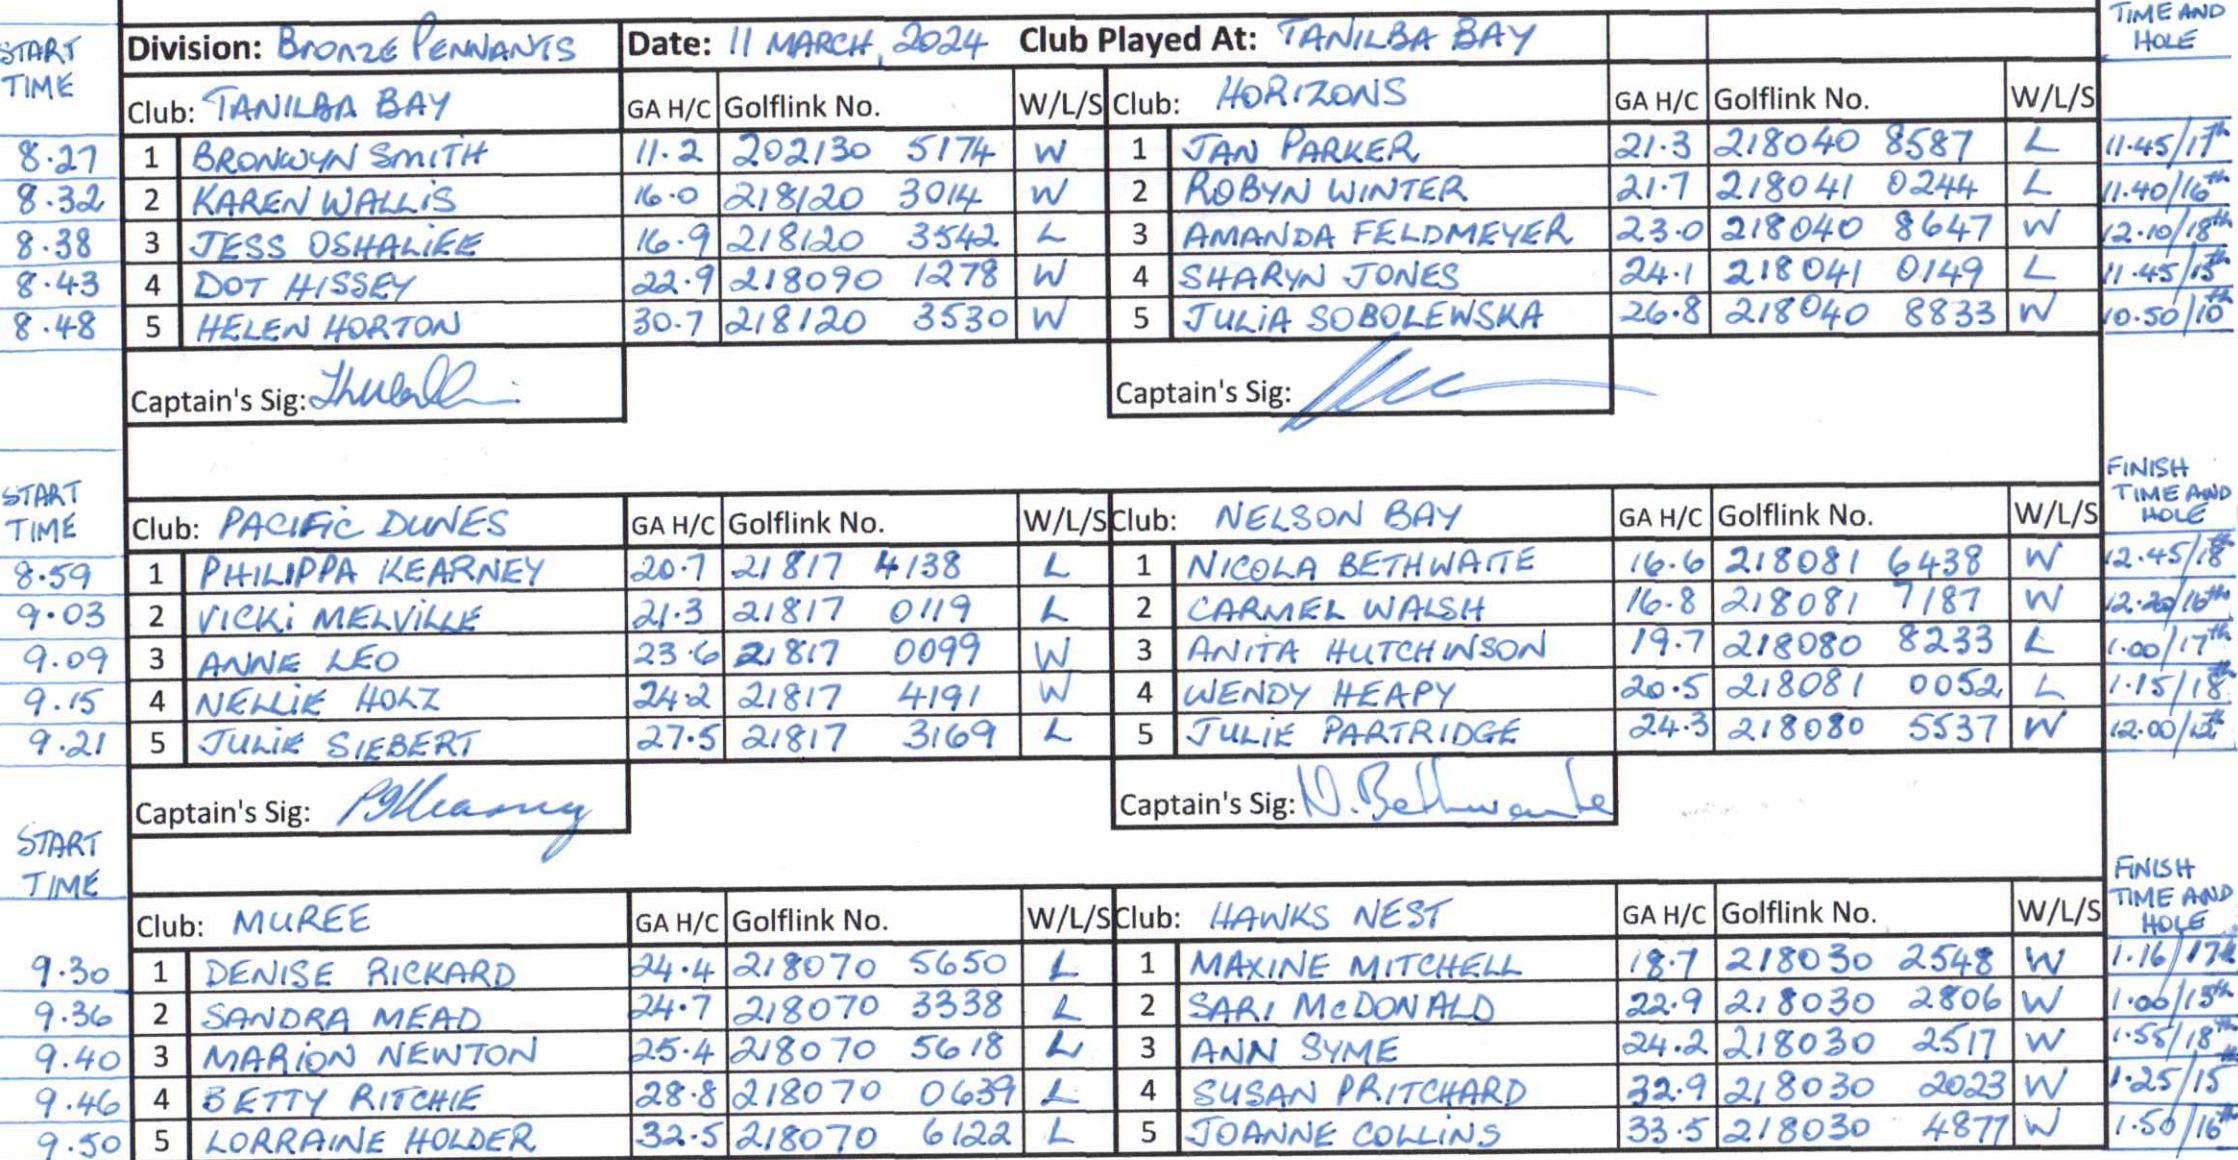 TIME AND
HOLE
START
TIME
Division: BRONZE PENNANTS Date: 11 MARCH, 2024 Club Played At: TANILBA BAY
Club: TANILBA BAY GA H/C Golflink No. W/L/S Club: HORIZONS GA H/C Golflink No. W/L/S
8.27 1 BRONWYN SMITH 11.2 202130 5174 W 1 JAN PARKER 21.3 218040 8587 L 11.45/17th
8.32 2 KAREN WALLIS 16.0 218120 3014 W 2 ROBYN WINTER 21.7 218041 0244 L 11.40/16th
8.38 3 JESS OSHALIEE 16.9 218120 3542 L 3 AMANDA FELDMEYER 23.0 218040 8647 W 12.10/18th
8.43 4 DOT HISSEY 22.9 218090 1278 W 4 SHARYN JONES 24.1 218041 0149 L 11.45/15th
8.48 5 HELEN HORTON 30.7 218120 3530 W 5 JULIA SOBOLEWSKA 26.8 218040 8833 W 10.50/10th
Captain's Sig: Captain's Sig:
START
TIME
FINISH
TIME AND
HOLE
Club: PACIFIC DUNES GA H/C Golflink No. W/L/S Club: NELSON BAY GA H/C Golflink No. W/L/S
8.59 1 PHILIPPA KEARNEY 20.7 21817 4138 L 1 NICOLA BETHWAITE 16.6 218081 6438 W 12.45/18th
9.03 2 VICKI MELVILLE 21.3 21817 0119 L 2 CARMEL WALSH 16.8 218081 7187 W 12.20/16th
9.09 3 ANNE LEO 23.6 21817 0099 W 3 ANITA HUTCHINSON 19.7 218080 8233 L 1.00/17th
9.15 4 NELLIE HOLZ 24.2 21817 4191 W 4 WENDY HEAPY 20.5 218081 0052 L 1.15/18th
9.21 5 JULIE SIEBERT 27.5 21817 3169 L 5 JULIE PARTRIDGE 24.3 218080 5537 W 12.00/
Captain's Sig: Captain's Sig: N. Bethwaite
START
TIME
FINISH
TIME AND
HOLE
Club: MUREE GA H/C Golflink No. W/L/S Club: HAWKS NEST GA H/C Golflink No. W/L/S
9.30 1 DENISE RICKARD 24.4 218070 5650 L 1 MAXINE MITCHELL 18.7 218030 2548 W 1.16/17th
9.36 2 SANDRA MEAD 24.7 218070 3338 L 2 SARI McDONALD 22.9 218030 2806 W 1.00/15th
9.40 3 MARION NEWTON 25.4 218070 5618 L 3 ANN SYME 24.2 218030 2517 W 1.55/18th
9.46 4 BETTY RITCHIE 28.8 218070 0639 L 4 SUSAN PRITCHARD 32.9 218030 2023 W 1.25/15th
9.50 5 LORRAINE HOLDER 32.5 218070 6122 L 5 JOANNE COLLINS 33.5 218030 4877 W 1.50/16th